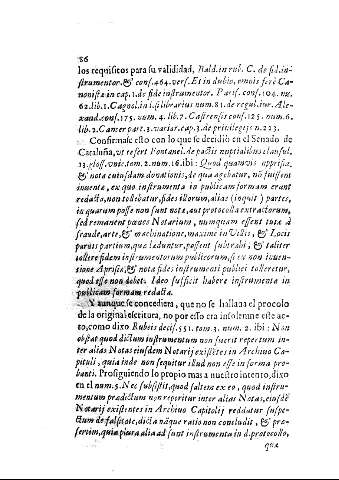 86
los requisitos para su valididad, Bald. in rub. C. de fid. in-
strumentor. & cons. 464. vers. Et in dubio, omnis ferè Ca-
nonistæ in cap. 1. de fide instrumentor. Paris. cons. 104. nu.
62. lib. 1. Cagnol. in l. si librarius num. 81. de regul. iur. Ale-
xand. cons. 175. num. 4. lib. 7. Castrensis cons. 125. num. 6.
lib. 2. Camer part. 3. variar. cap. 3. de privilegijs n. 223.
Confirmase esto con lo que se decidiò en el Senado de
Cataluña, ut refert Fontanel. de pactis nuptialibus clausul.
13. gloss. unic. tom. 2. num. 16. ibi: Quod quamvis aprisiæ,
& nota cuiusdam donationis, de qua agebatur, nõ fuissent
inventæ, ex quo instrumenta in publicam formam erant
redacta, non tollebatur, fides illorum, alias (inquit) partes,
in quarum posse non sunt notæ, aut protocolla extractorum,
sed remanent penès Notarium, numquam essent tutæ à
fraude, arte, & machinatione, maxime in Villis, & Locis
parvis partium, quæ læduntur, possent subtrahi, & taliter
tollere fidem instrumentorum publicorum, si ex non inven-
tione Aprisiæ, & nota fides instrumenti publici tolleretur,
quod esse non debet. Ideo sufficit habere instrumenta in
publicam formam redacta.
Y aunque se concediera, que no se hallara el procolo
de la original escritura, no por esso era insolemne este ac-
to, como dixo Rubeis decis. 551. tom. 3. num. 2. ibi: Non
obstat quod dictum instrumentum non fuerit repertum in-
ter alias Notas eiusdem Notarij existẽtes in Archivo Ca-
pituli, quia inde non sequitur illud non esse in forma pro-
banti. Prosiguiendo lo propio mas à nuestro intento, dixo
en el num. 5. Nec subsistit, quod saltem ex eo, quod instru-
mentum prædictum non reperitur inter alias Notas, eiusdẽ
Notarij existentes in Archivo Capitoli, reddatur suspe-
ctum de falsitate, dicta nãque ratio non concludit, & pro-
servim, quia plura alia adsunt instrumenta in d. protocollo,
quæ